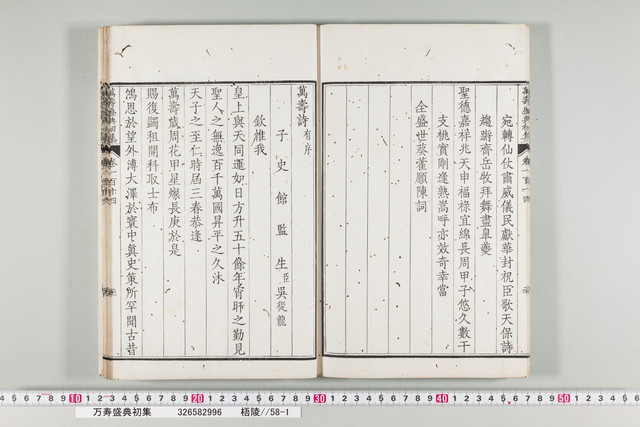 宛轉仙仗肅威儀民獻華封祝臣歌天保詩
趨蹌齊岳牧拜舞盡臯夔
聖德嘉祥兆天申福祿宜綿長周甲子悠久數干
支桃實剛逢熟嵩呼亦效奇幸當
全盛世葵藿願陳詞
萬壽詩有序
子史館監生臣吳從龍
欽惟我
皇上與天同運如日方升五十餘年宵旰之勤見
聖人之無逸百千萬國昇平之久沐
天子之至仁時屆三春恭逢
萬壽歲周花甲星燦長庚於是
賜復蠲租開科取士布
鴻恩於望外溥大澤於寰中眞史策所罕聞古昔
万寿盛典初集 326582996 梧陵//58-1
10 20 30 40 50